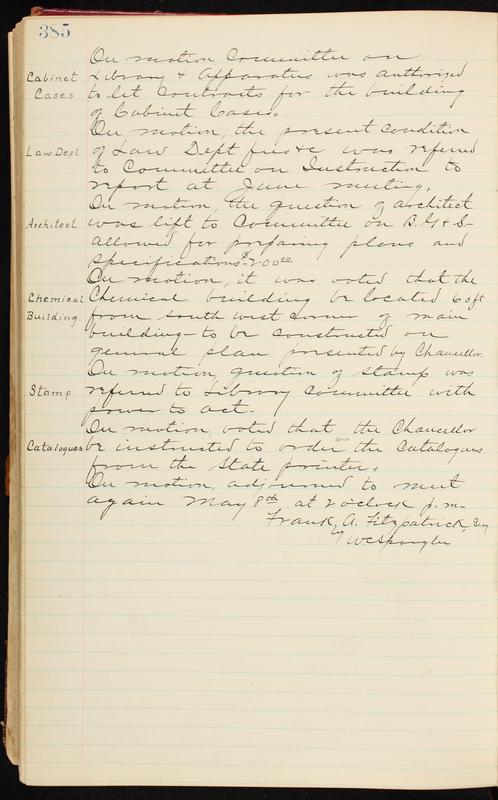 385
On motion Committee on
Cabinet Library & Apparatus was authorized
Cases to let contracts for the building
of Cabinet Cases.
On motion, the present condition
Law Dept of Law Dept fees &c was referred
to Committee on Instruction to
report at June meeting.
On motion, the question of architect
Architect was left to Committee on B. G & S-
allowed for preparing plans and
specifications $200 00
On motion, it was voted that the
Chemical Chemical building be located 60 ft
Building from south west corner of main
building - to be constructed on
general plan presented by Chancellor.
On motion, question of stamp was
Stamp referred to Library committee with
power to act-
On motion, voted that the Chancellor
Catalogues be instructed to order the Catalogues
from the State printer.
On motion, adjourned to meet
again May 8th at 2 o'clock p. m-
Frank. A. Fitzpatrick, Secy
by W C Spangler